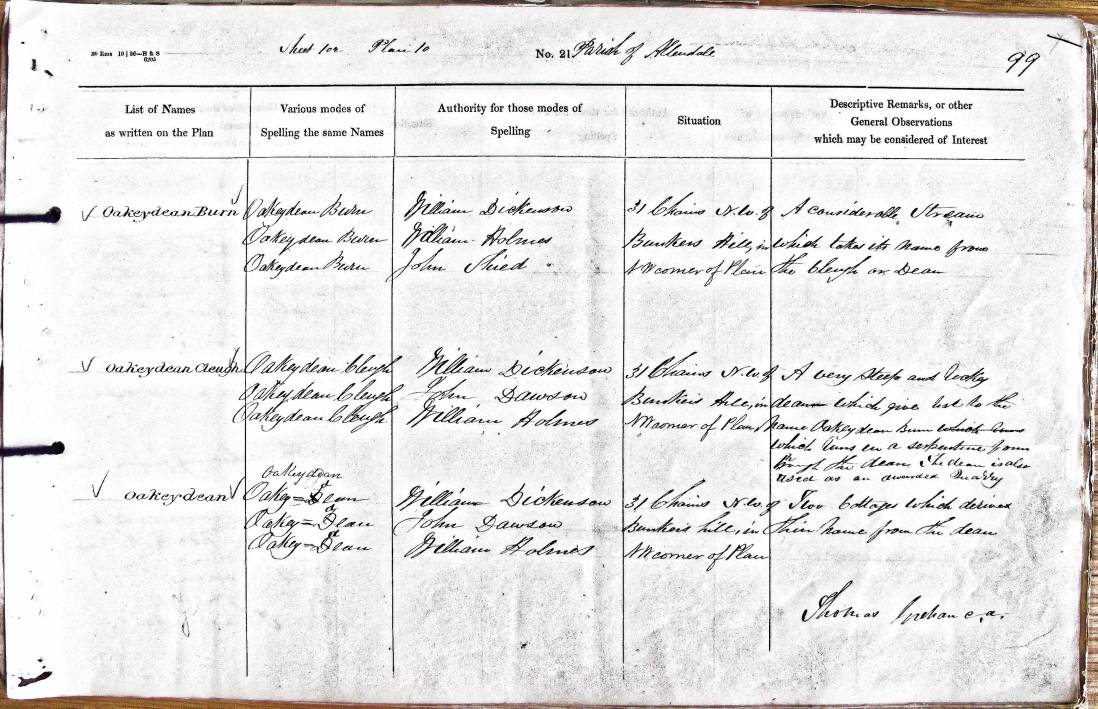 20 Rms 10 | 56—H & S
6205
Sheet 102 Plan 10 No. 21. Parish of Allendale 99
List of Names
as written on the Plan
Various modes of
Spelling the same Names
Authority for those modes of
Spelling
Situation
Descriptive Remarks, or other
General Observations
which may be considered of Interest
Oakeydean Burn Oakeydean Burn William Dickenson 31 Chains N.W. of A considerable Stream
Oakeydean Burn William Holmes Bunkers Hill, in which takes its name from
Oakeydean Burn John Shied NW corner of Plan the Cleugh or Dean
Oakeydean Cleugh Oakeydean Cleugh William Dickenson 31 Chains N.W. of A very steep and rocky
Oakeydean Cleugh John Dawson Bunkers Hill, in dean which give rise to the
Oakeydean Cleugh William Holmes NW corner of Plan name Oakeydean Burn which runs
which runs in a serpentine form
through the dean, The dean is also
used as an awarded Quarry
Oakeydean
Oakeydean Oakey=dean William Dickenson 31 Chains N.W. of Two Cottages which derives
Oakey=dean John Dawson Bunkers hill, in their name from the dean
Oakey=dean William Holmes NW corner of Plan
Thomas c.a.